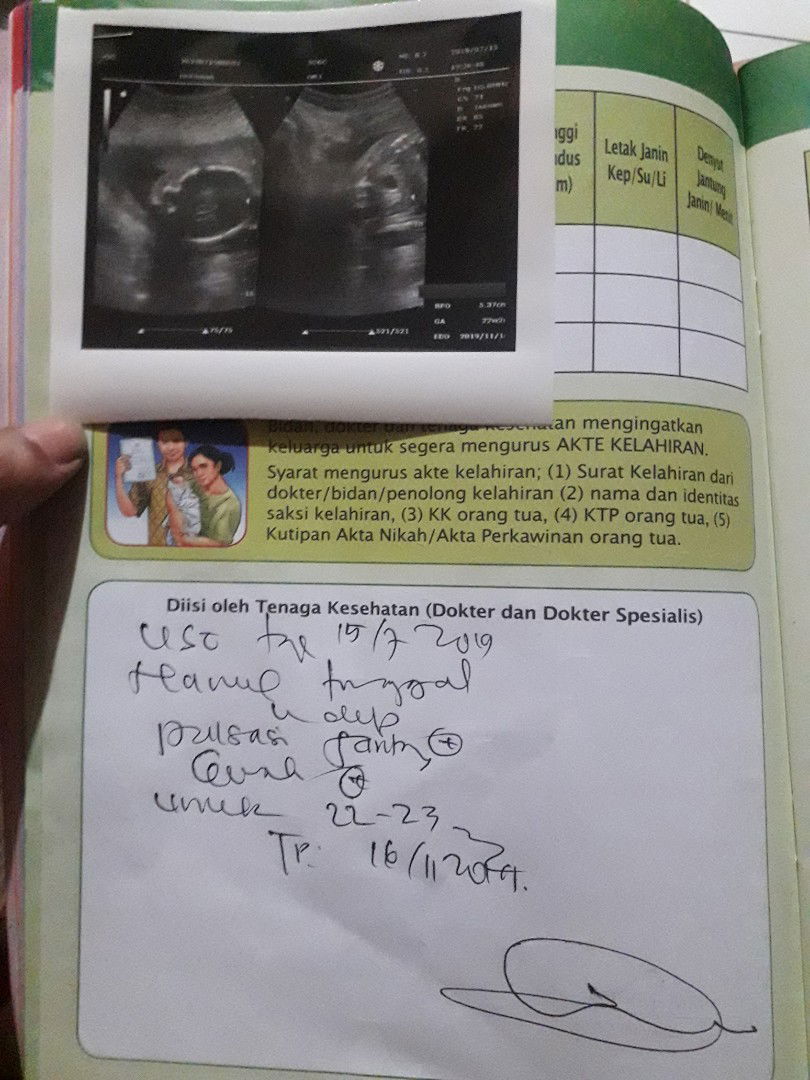 2019/07/15
BPD 5.37cm
GA 22w2d
EDD 2019/11/1
75/75
321/321
nggi
dus
m)
Letak Janin
Kep/Su/Li
Denyut
Jantung
Janin/ Menit
Bidan, dokter dan tenaga kesehatan mengingatkan
keluarga untuk segera mengurus AKTE KELAHIRAN.
Syarat mengurus akte kelahiran; (1) Surat Kelahiran dari
dokter/bidan/penolong kelahiran (2) nama dan identitas
saksi kelahiran, (3) KK orang tua, (4) KTP orang tua, (5)
Kutipan Akta Nikah/Akta Perkawinan orang tua.
Diisi oleh Tenaga Kesehatan (Dokter dan Dokter Spesialis)
USG tgl 15/7 2019
Hamil tunggal
hidup
pulsasi jantung (+)
Gerak (+)
umur 22-23
TP: 16/11 2019.